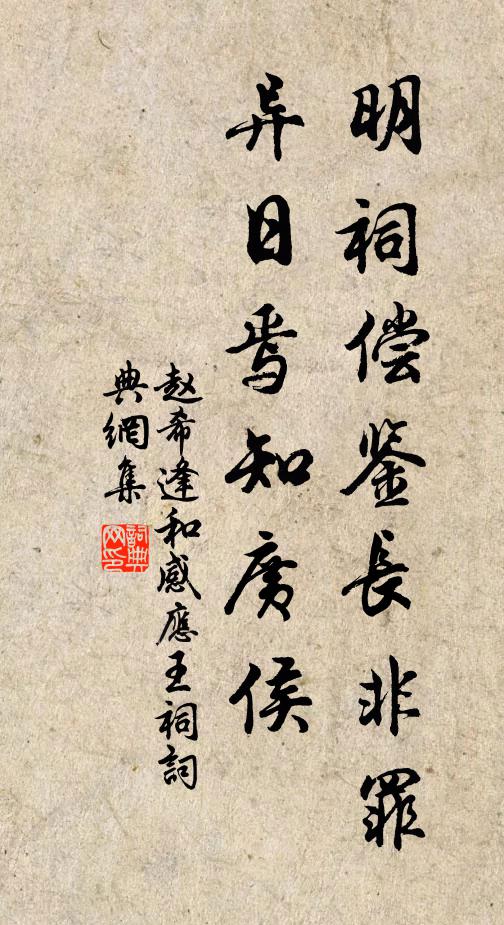 明祠偿鉴長非罪
异日焉知廣侯
赵希逢和感應王祠詞
典網集
詞典
网印